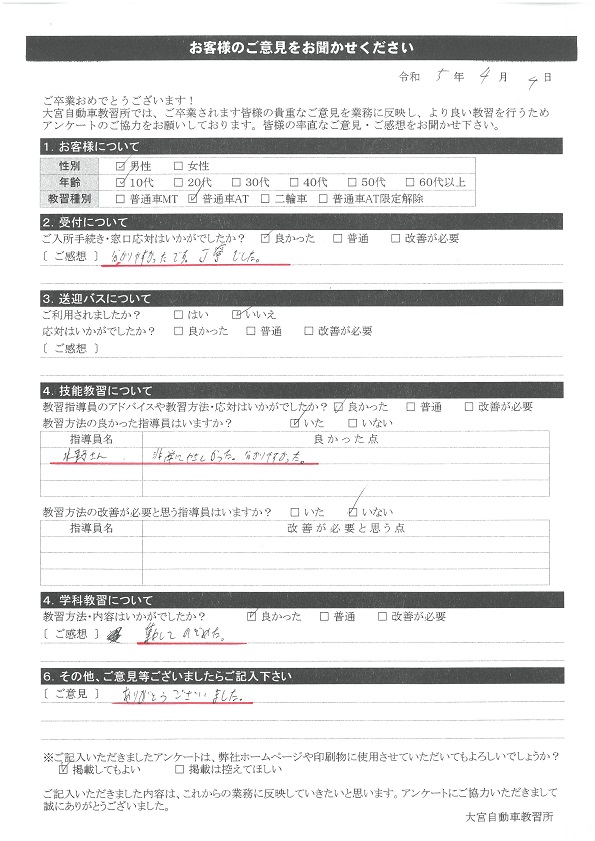 お客様のご意見をお聞かせください
令和 5 年 4 月 9 日
ご卒業おめでとうございます！
大宮自動車教習所では、ご卒業されます皆様の貴重なご意見を業務に反映し、より良い教習を行うため
アンケートのご協力をお願いしております。皆様の率直なご意見・ご感想をお聞かせ下さい。
1. お客様について
性別 ☑男性 □女性
年齢 ☑10代 □20代 □30代 □40代 □50代 □60代以上
教習種別 □普通車MT ☑普通車AT □二輪車 □普通車AT限定解除
2. 受付について
ご入所手続き・窓口応対はいかがでしたか？ ☑良かった □普通 □改善が必要
〔 ご感想 〕 分かりやすかったです。丁寧でした。
3. 送迎バスについて
ご利用されましたか？ □はい ☑いいえ
応対はいかがでしたか？ □良かった □普通 □改善が必要
〔 ご感想 〕
4. 技能教習について
教習指導員のアドバイスや教習方法・応対はいかがでしたか？ ☑良かった □普通 □改善が必要
教習方法の良かった指導員はいますか？ ☑いた □いない
指導員名 良かった点
さん 分かりやすかった。
教習方法の改善が必要と思う指導員はいますか？ □いた ☑いない
指導員名 改善が必要と思う点
4. 学科教習について
教習方法・内容はいかがでしたか？ ☑良かった □普通 □改善が必要
〔 ご感想 〕
6. その他、ご意見等ございましたらご記入下さい
〔 ご意見 〕 ありがとうございました。
※ご記入いただきましたアンケートは、弊社ホームページや印刷物に使用させていただいてもよろしいでしょうか？
☑掲載してもよい □掲載は控えてほしい
ご記入いただきました内容は、これからの業務に反映していきたいと思います。アンケートにご協力いただきまして
誠にありがとうございました。
大宮自動車教習所